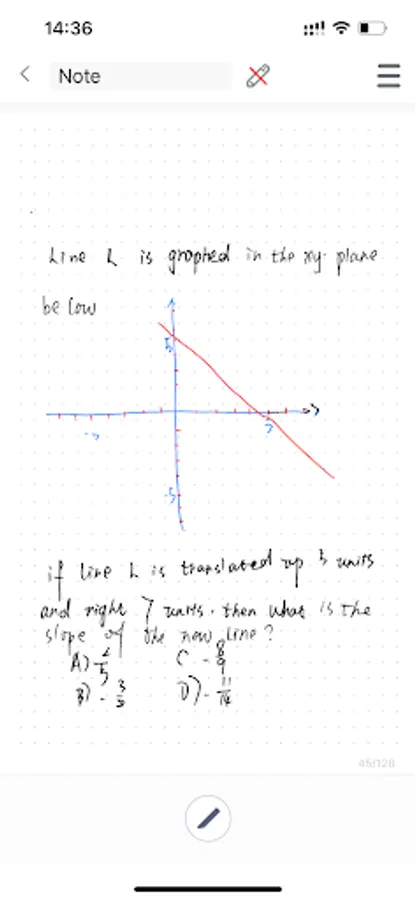 14:36
Note
Line L is graphed in the xy-plane
below
5
-5
5
-5
if line L is translated up 5 units
and right 7 units. then what is the
slope of the new line?
A) -2/5
C -8/9
B) -3/2
D) -11/14
45/128